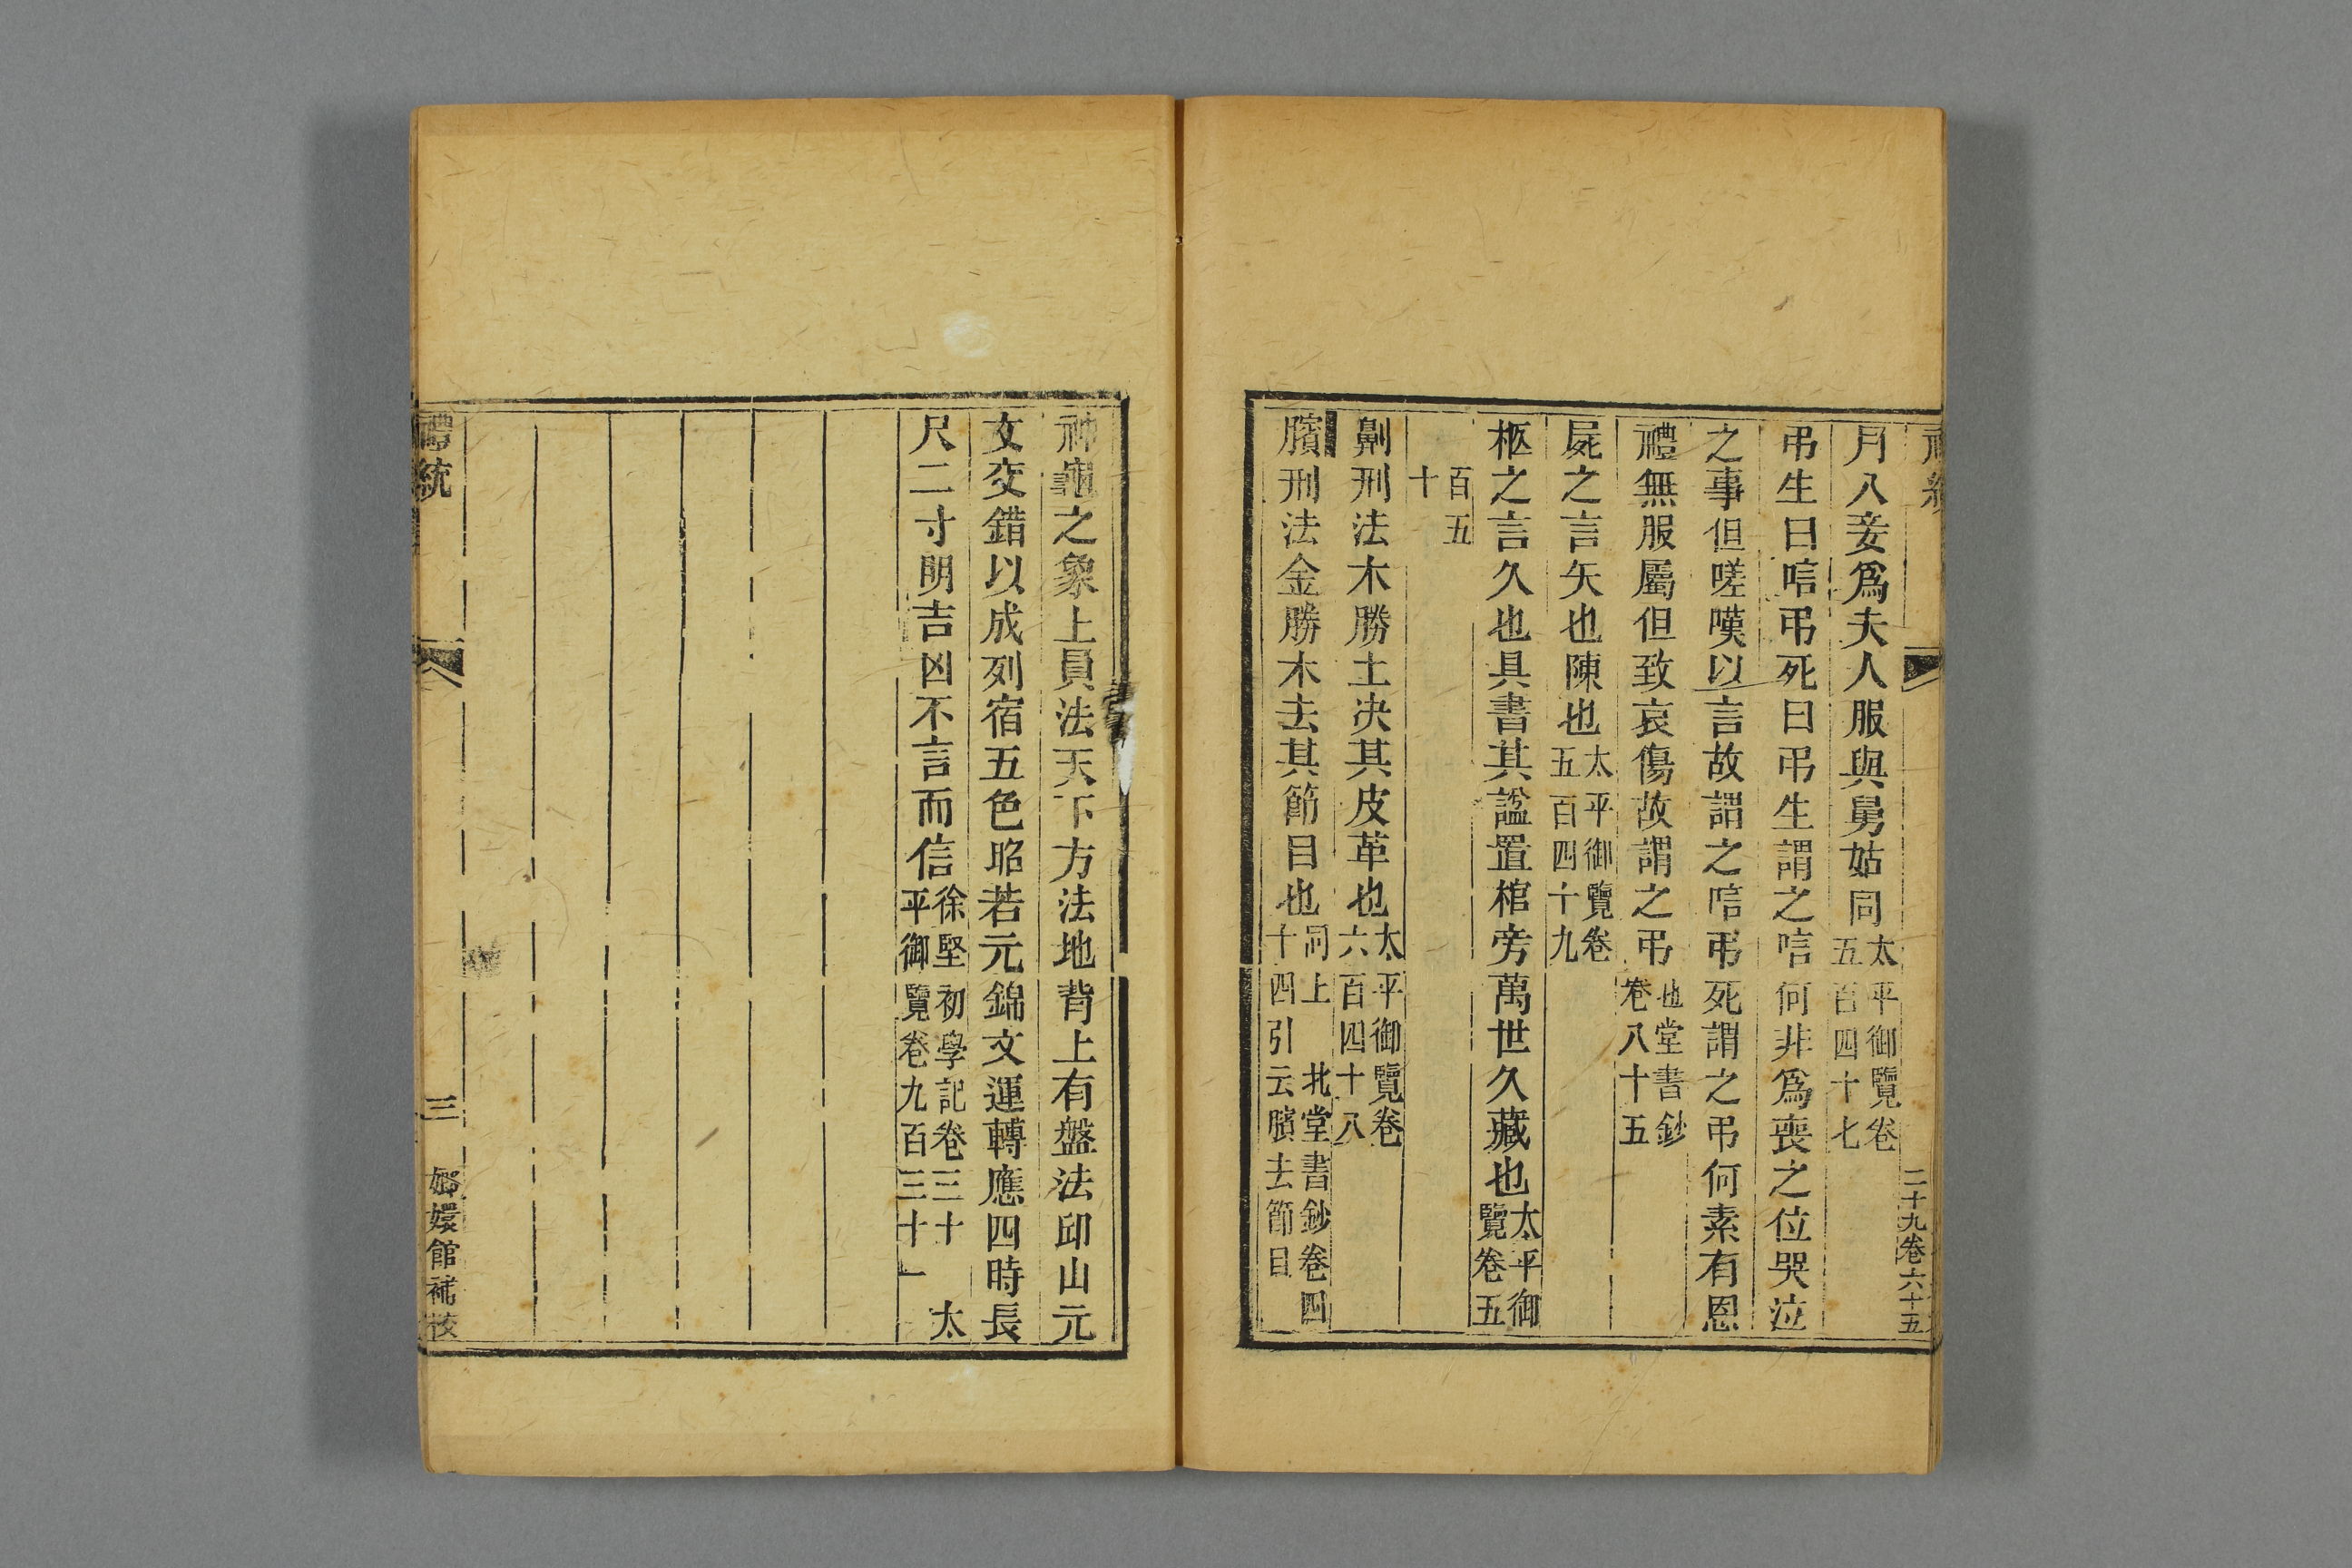 二十九卷六十五
月八妾爲夫人服與舅姑同太平御覽卷五百四十七
弔生曰唁弔死曰弔生謂之唁何非爲喪之位哭泣
之事但嗟嘆以言故謂之唁弔死謂之弔何素有恩
禮無服屬但致哀傷故謂之弔北堂書鈔卷八十五
屍之言矢也陳也太平御覽卷五百四十九
柩之言久也具書其諡置棺旁萬世久藏也太平御覽卷五
百五十
劓刑法木勝土决其皮革也太平御覽卷六百四十八
臏刑法金勝木去其節目也同上 北堂書鈔卷四十四引云臏去節目
神龜之象上員法天下方法地背上有盤法邱山元
文交錯以成列宿五色昭若元錦文運轉應四時長
尺二寸明吉凶不言而信徐堅初學記卷三十 太平御覽卷九百三十一
禮統
三
嫏嬛館補校